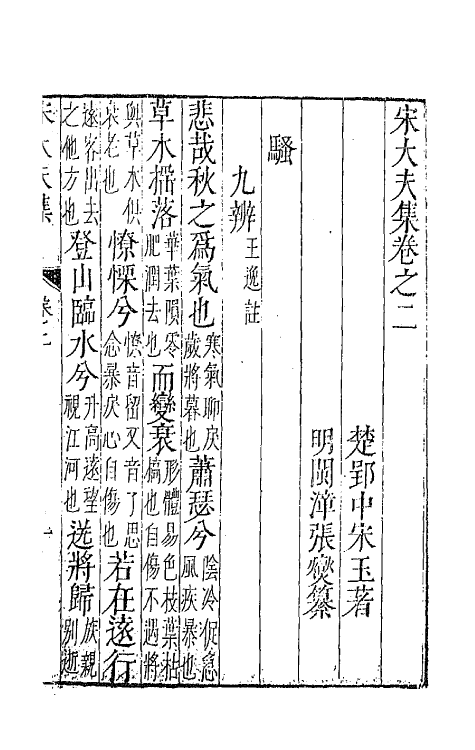 宋大夫集卷之二
楚郢中宋玉著
明閩漳張燮纂
騷
九辨王逸註
悲哉秋之爲氣也寒氣聊戾歲將暮也蕭瑟兮陰冷促急風疾暴也
草木搖落華葉隕零肥潤去也而變衰形體易色枝葉枯槁也自傷不遇將
與草木俱衰老也憭慄兮憭音留又音了思念暴戾心自傷也若在遠行
遠客出去之他方也登山臨水兮升高遠望視江河也送將歸族親別逝
宋大夫集 卷二 一